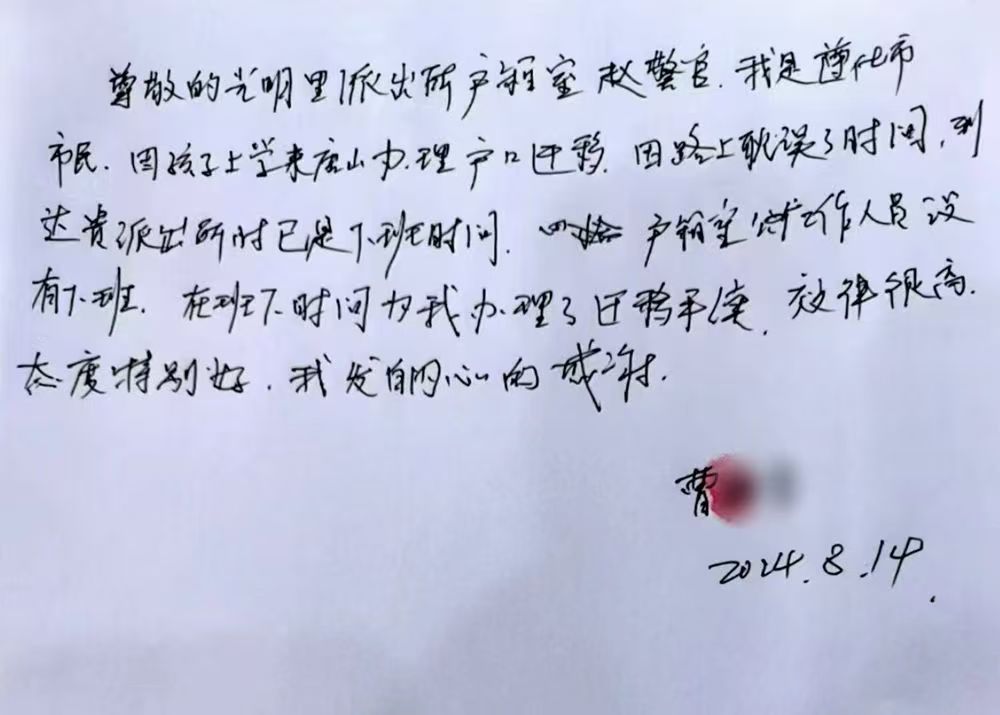 尊敬的光明里派出所户籍室赵警官.我是遵化市
市民.因孩子上学来唐山办理户口迁移.因路上耽误了时间,到
达贵派出所时已是下班时间.户籍室工作人员没
有下班.在班下时间为我办理了迁移手续.效律很高.
态度特别好.我发自内心的感谢.
曹
2024.8.14.